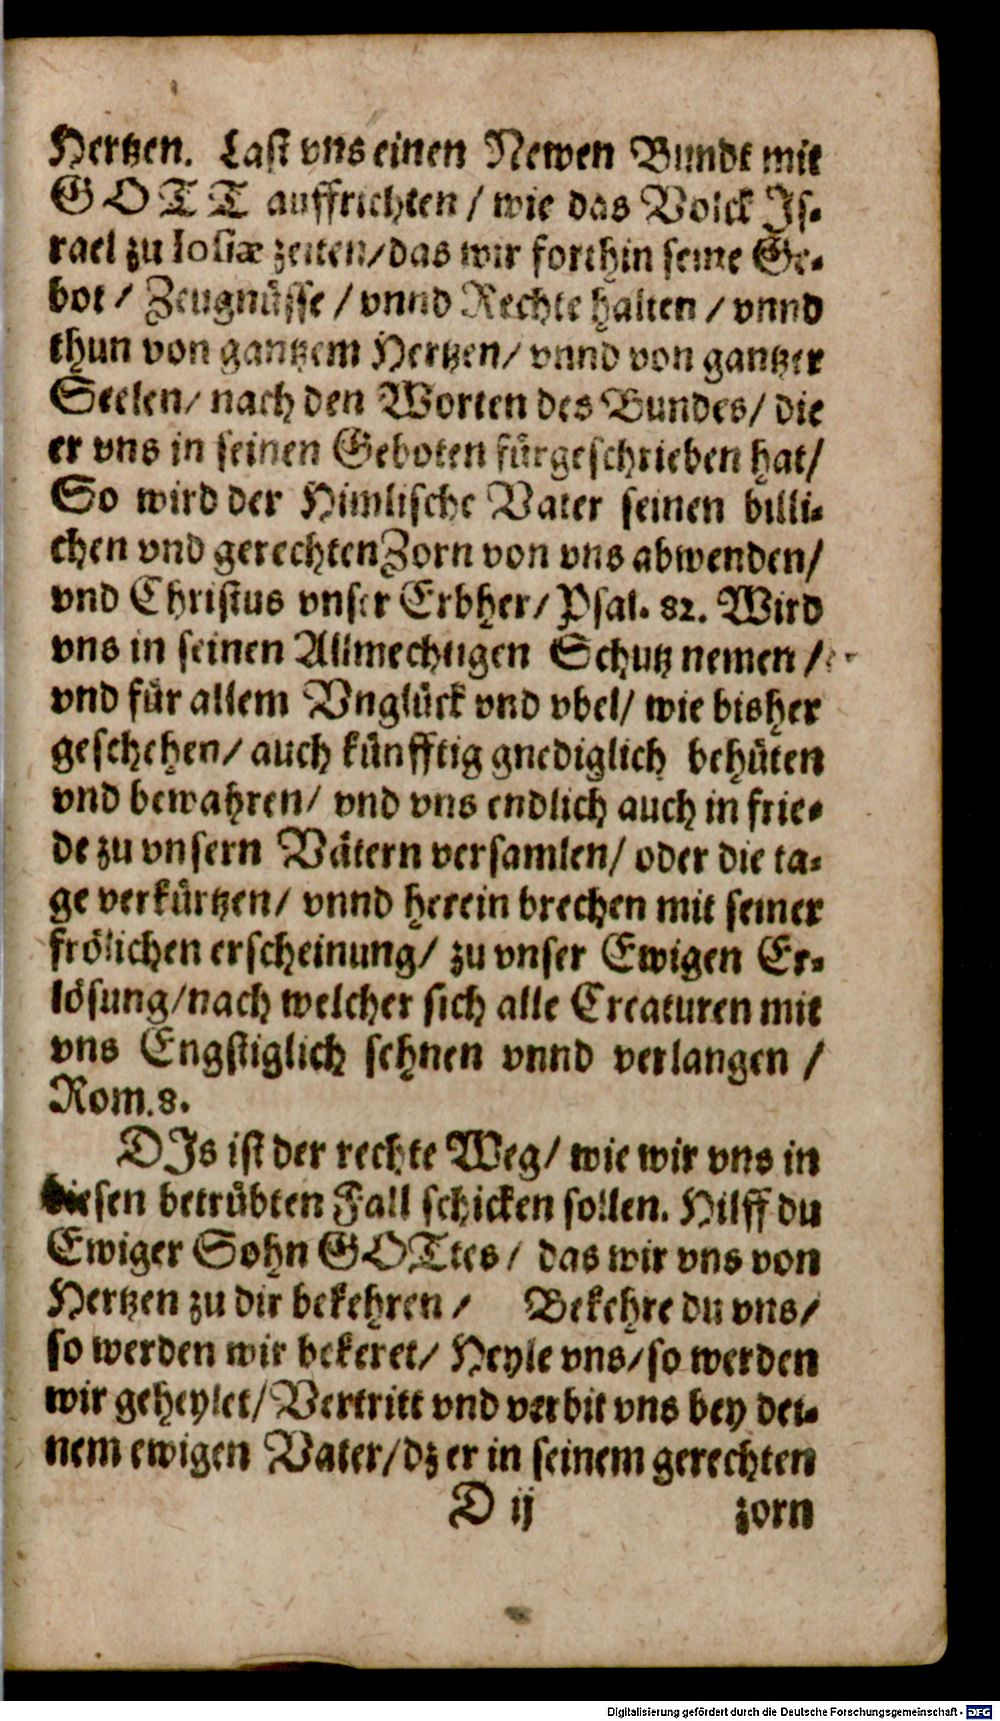 Hertzen. Last vns einen Newen Bundt mit
GOTT auffrichten / wie das Volck Js-
rael zu Iosiæ zeiten/das wir forthin seine Ge-
bot / Zeugnüsse / vnnd Rechte halten / vnnd
thun von gantzem Hertzen/ vnnd von gantzer
Seelen/ nach den Worten des Bundes/ die
er vns in seinen Geboten fürgeschrieben hat/
So wird der Himlische Vater seinen billi-
chen vnd gerechten Zorn von vns abwenden/
vnd Christus vnser Erbher/ Psal. 82. Wird
vns in seinen Allmechtigen Schutz nemen /
vnd für allem Vnglück vnd vbel/ wie bisher
geschehen/ auch künfftig gnediglich behüten
vnd bewahren/ vnd vns endlich auch in frie-
de zu vnsern Vätern versamlen/ oder die ta-
ge verkürtzen/ vnnd herein brechen mit seiner
frölichen erscheinung/ zu vnser Ewigen Er-
lösung/nach welcher sich alle Creaturen mit
vns Engstiglich sehnen vnnd verlangen /
Rom. 8.
DJs ist der rechte Weg/ wie wir vns in
diesen betrübten Fall schicken sollen. Hilff du
Ewiger Sohn GOTtes/ das wir vns von
Hertzen zu dir bekehren / Bekehre du vns/
so werden wir bekeret/ Heyle vns/so werden
wir geheylet/Vertritt vnd verbit vns bey dei-
nem ewigen Vater/dz er in seinem gerechten
D ij zorn
Digitalisierung gefördert durch die Deutsche Forschungsgemeinschaft - DFG